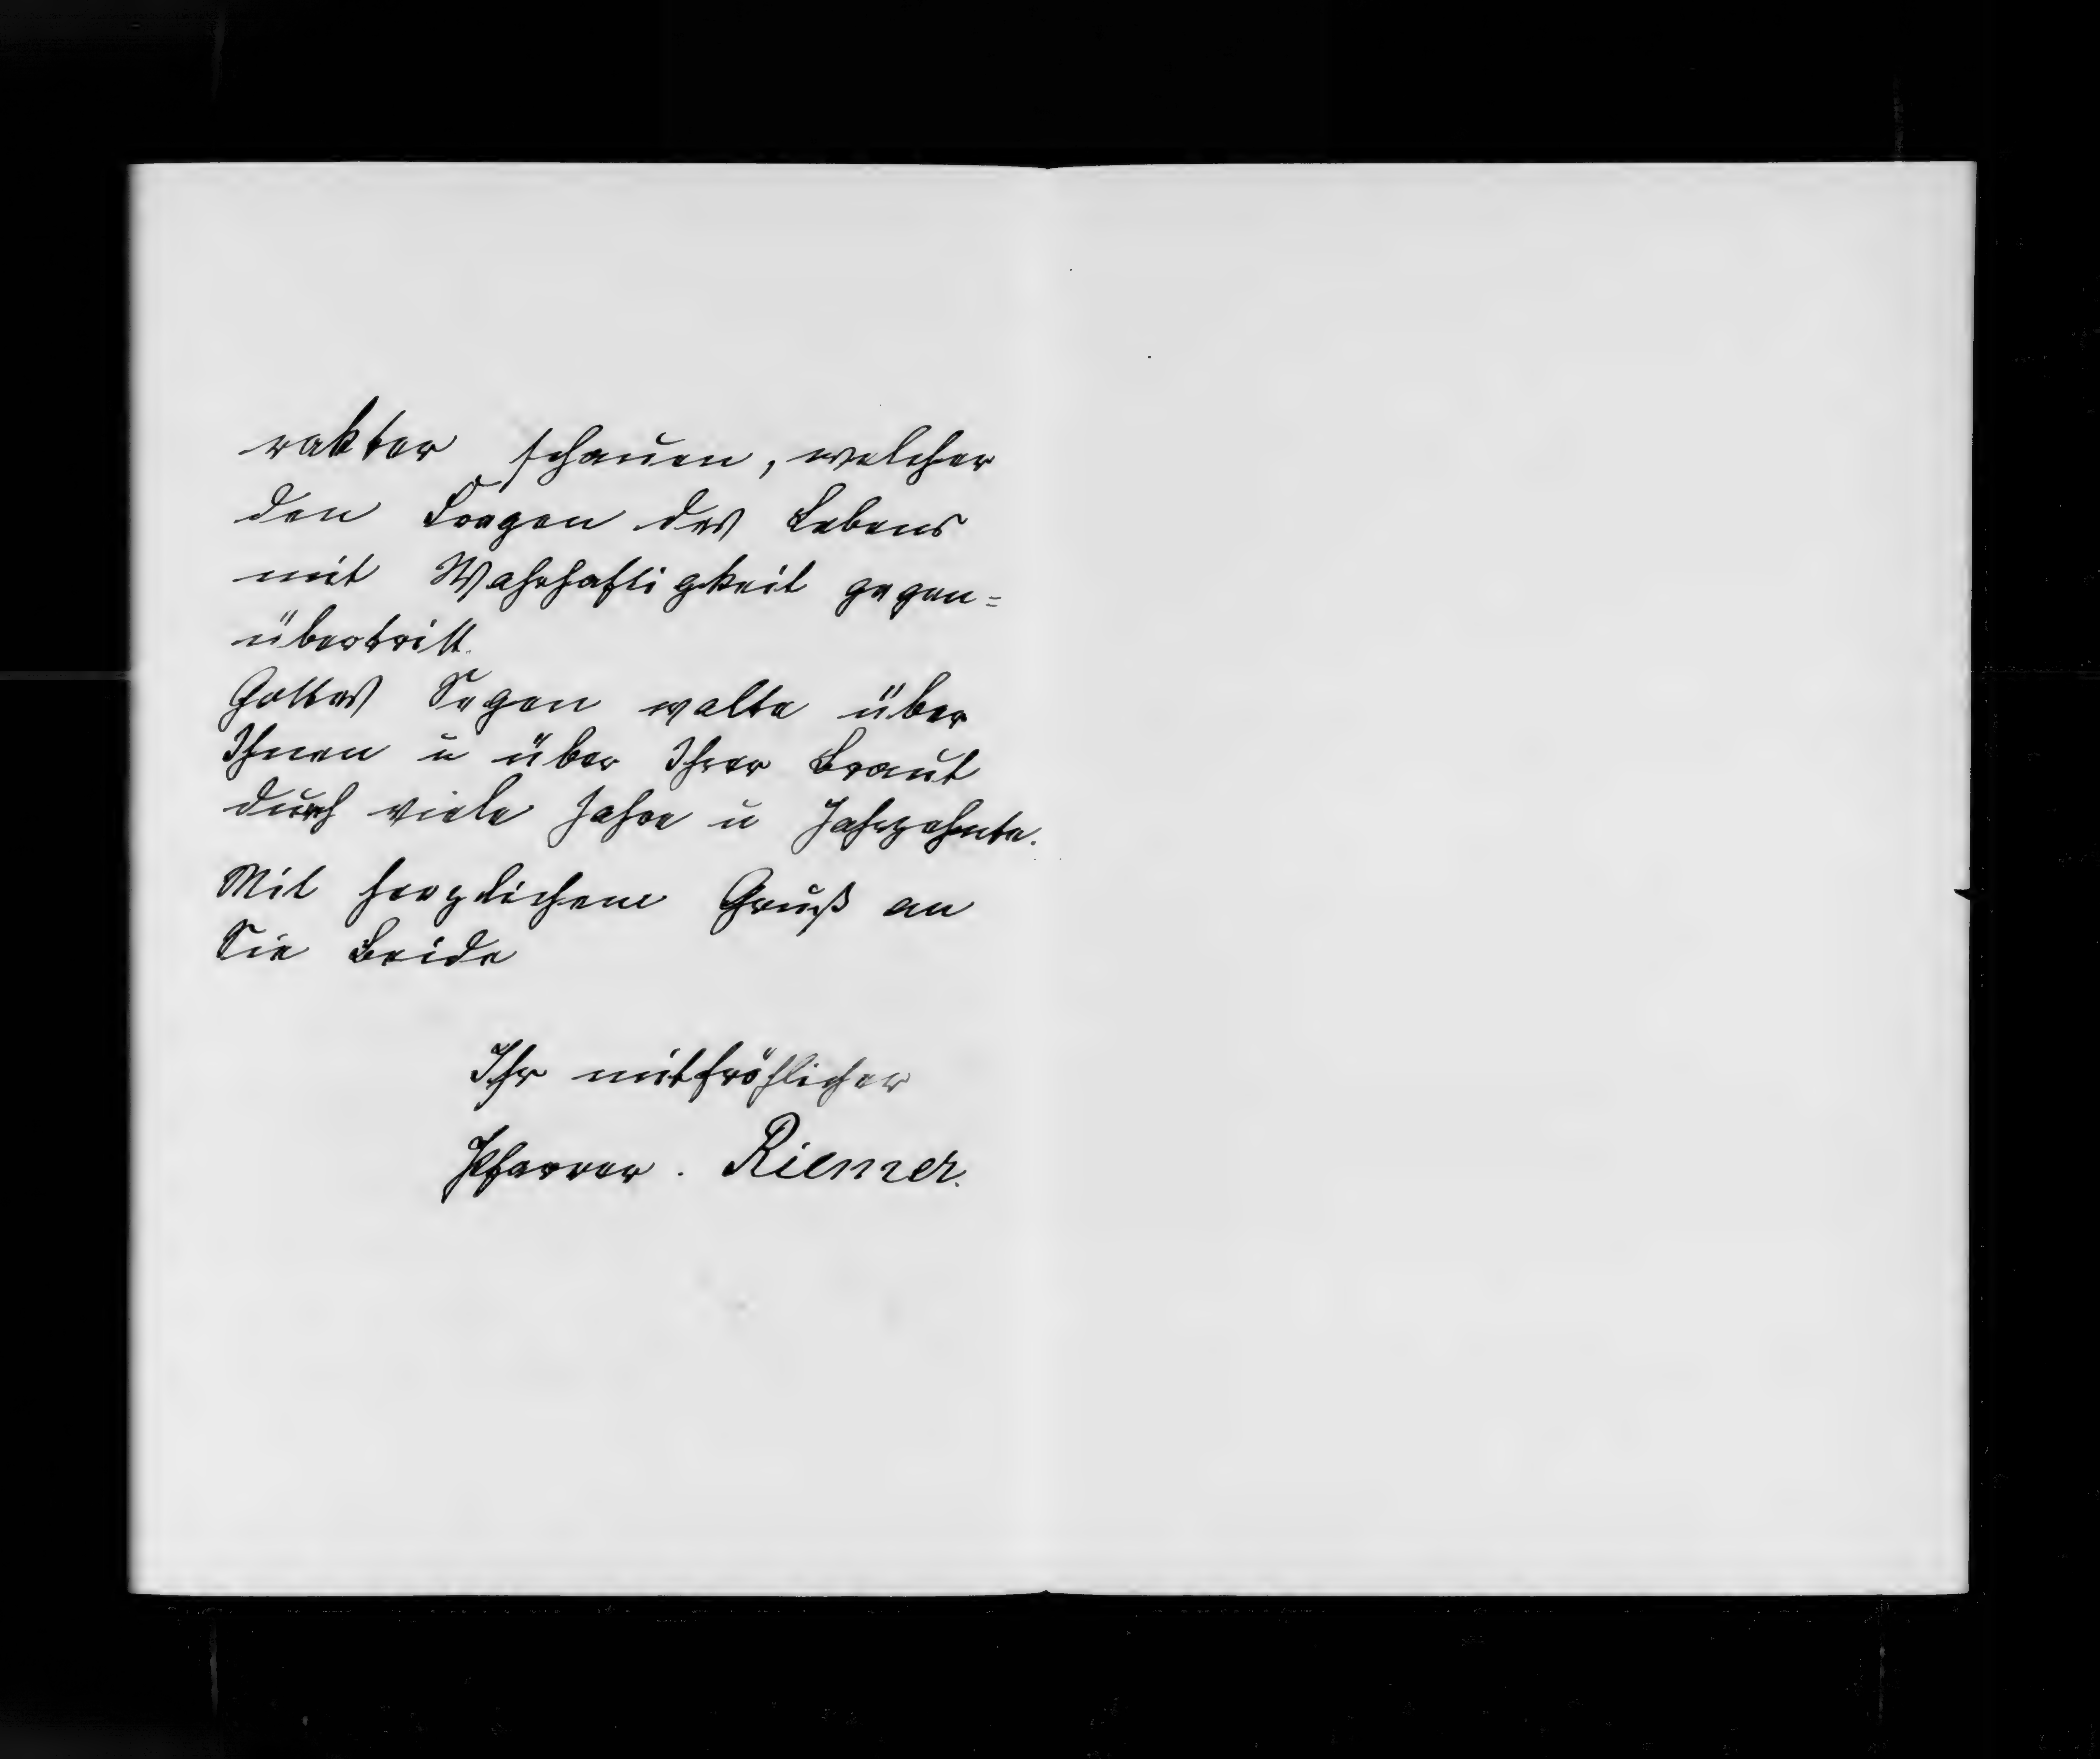 rakter schauen, welcher
den Fragen des Lebens
mit Wahrhaftigkeit gegen=
übertritt.
Gottes Segen walte über
Ihnen u über Ihrer Braut
durch viele Jahre u Jahrzehnte.
Mit herzlichem Gruß an
Sie Beide
Ihr mitfröhlicher
Pfarrer. Riemer.